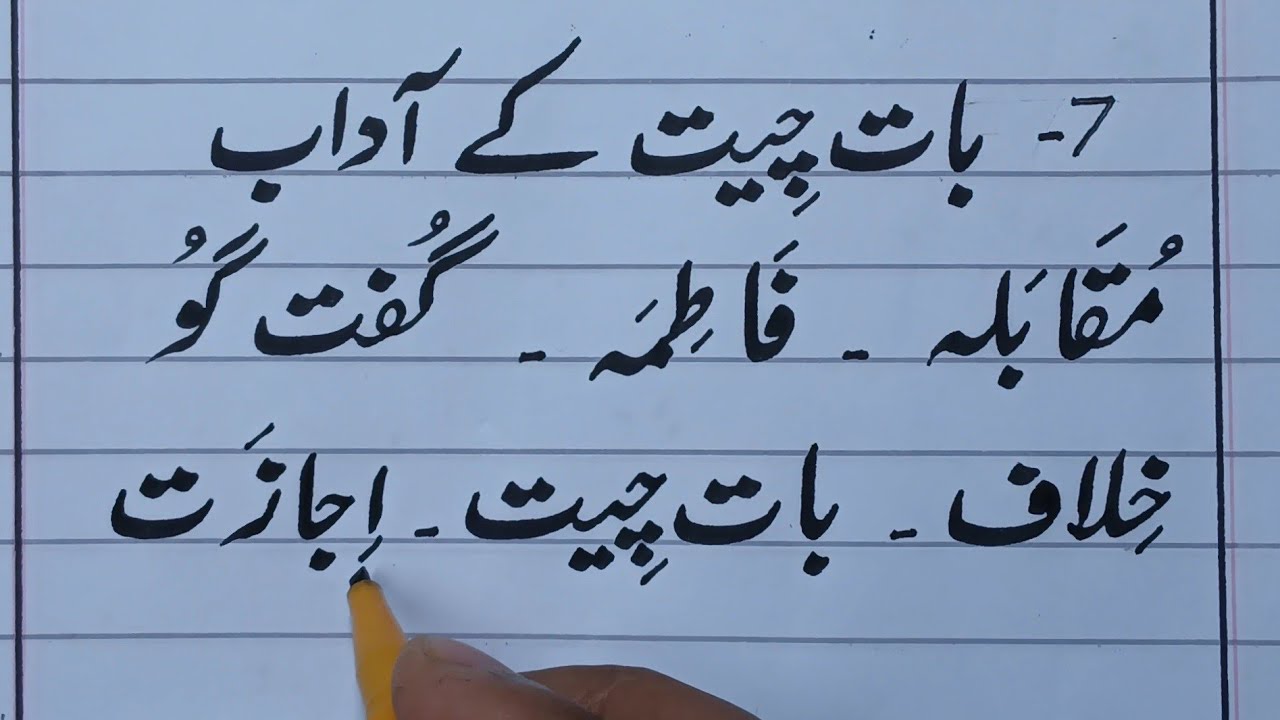 7- بات چِیت کے آداب
مُقَابَلہ ۔ فَاطِمَہ ۔ گُفت گُو
خِلاف ۔ بات چِیت ۔ اِجازَت